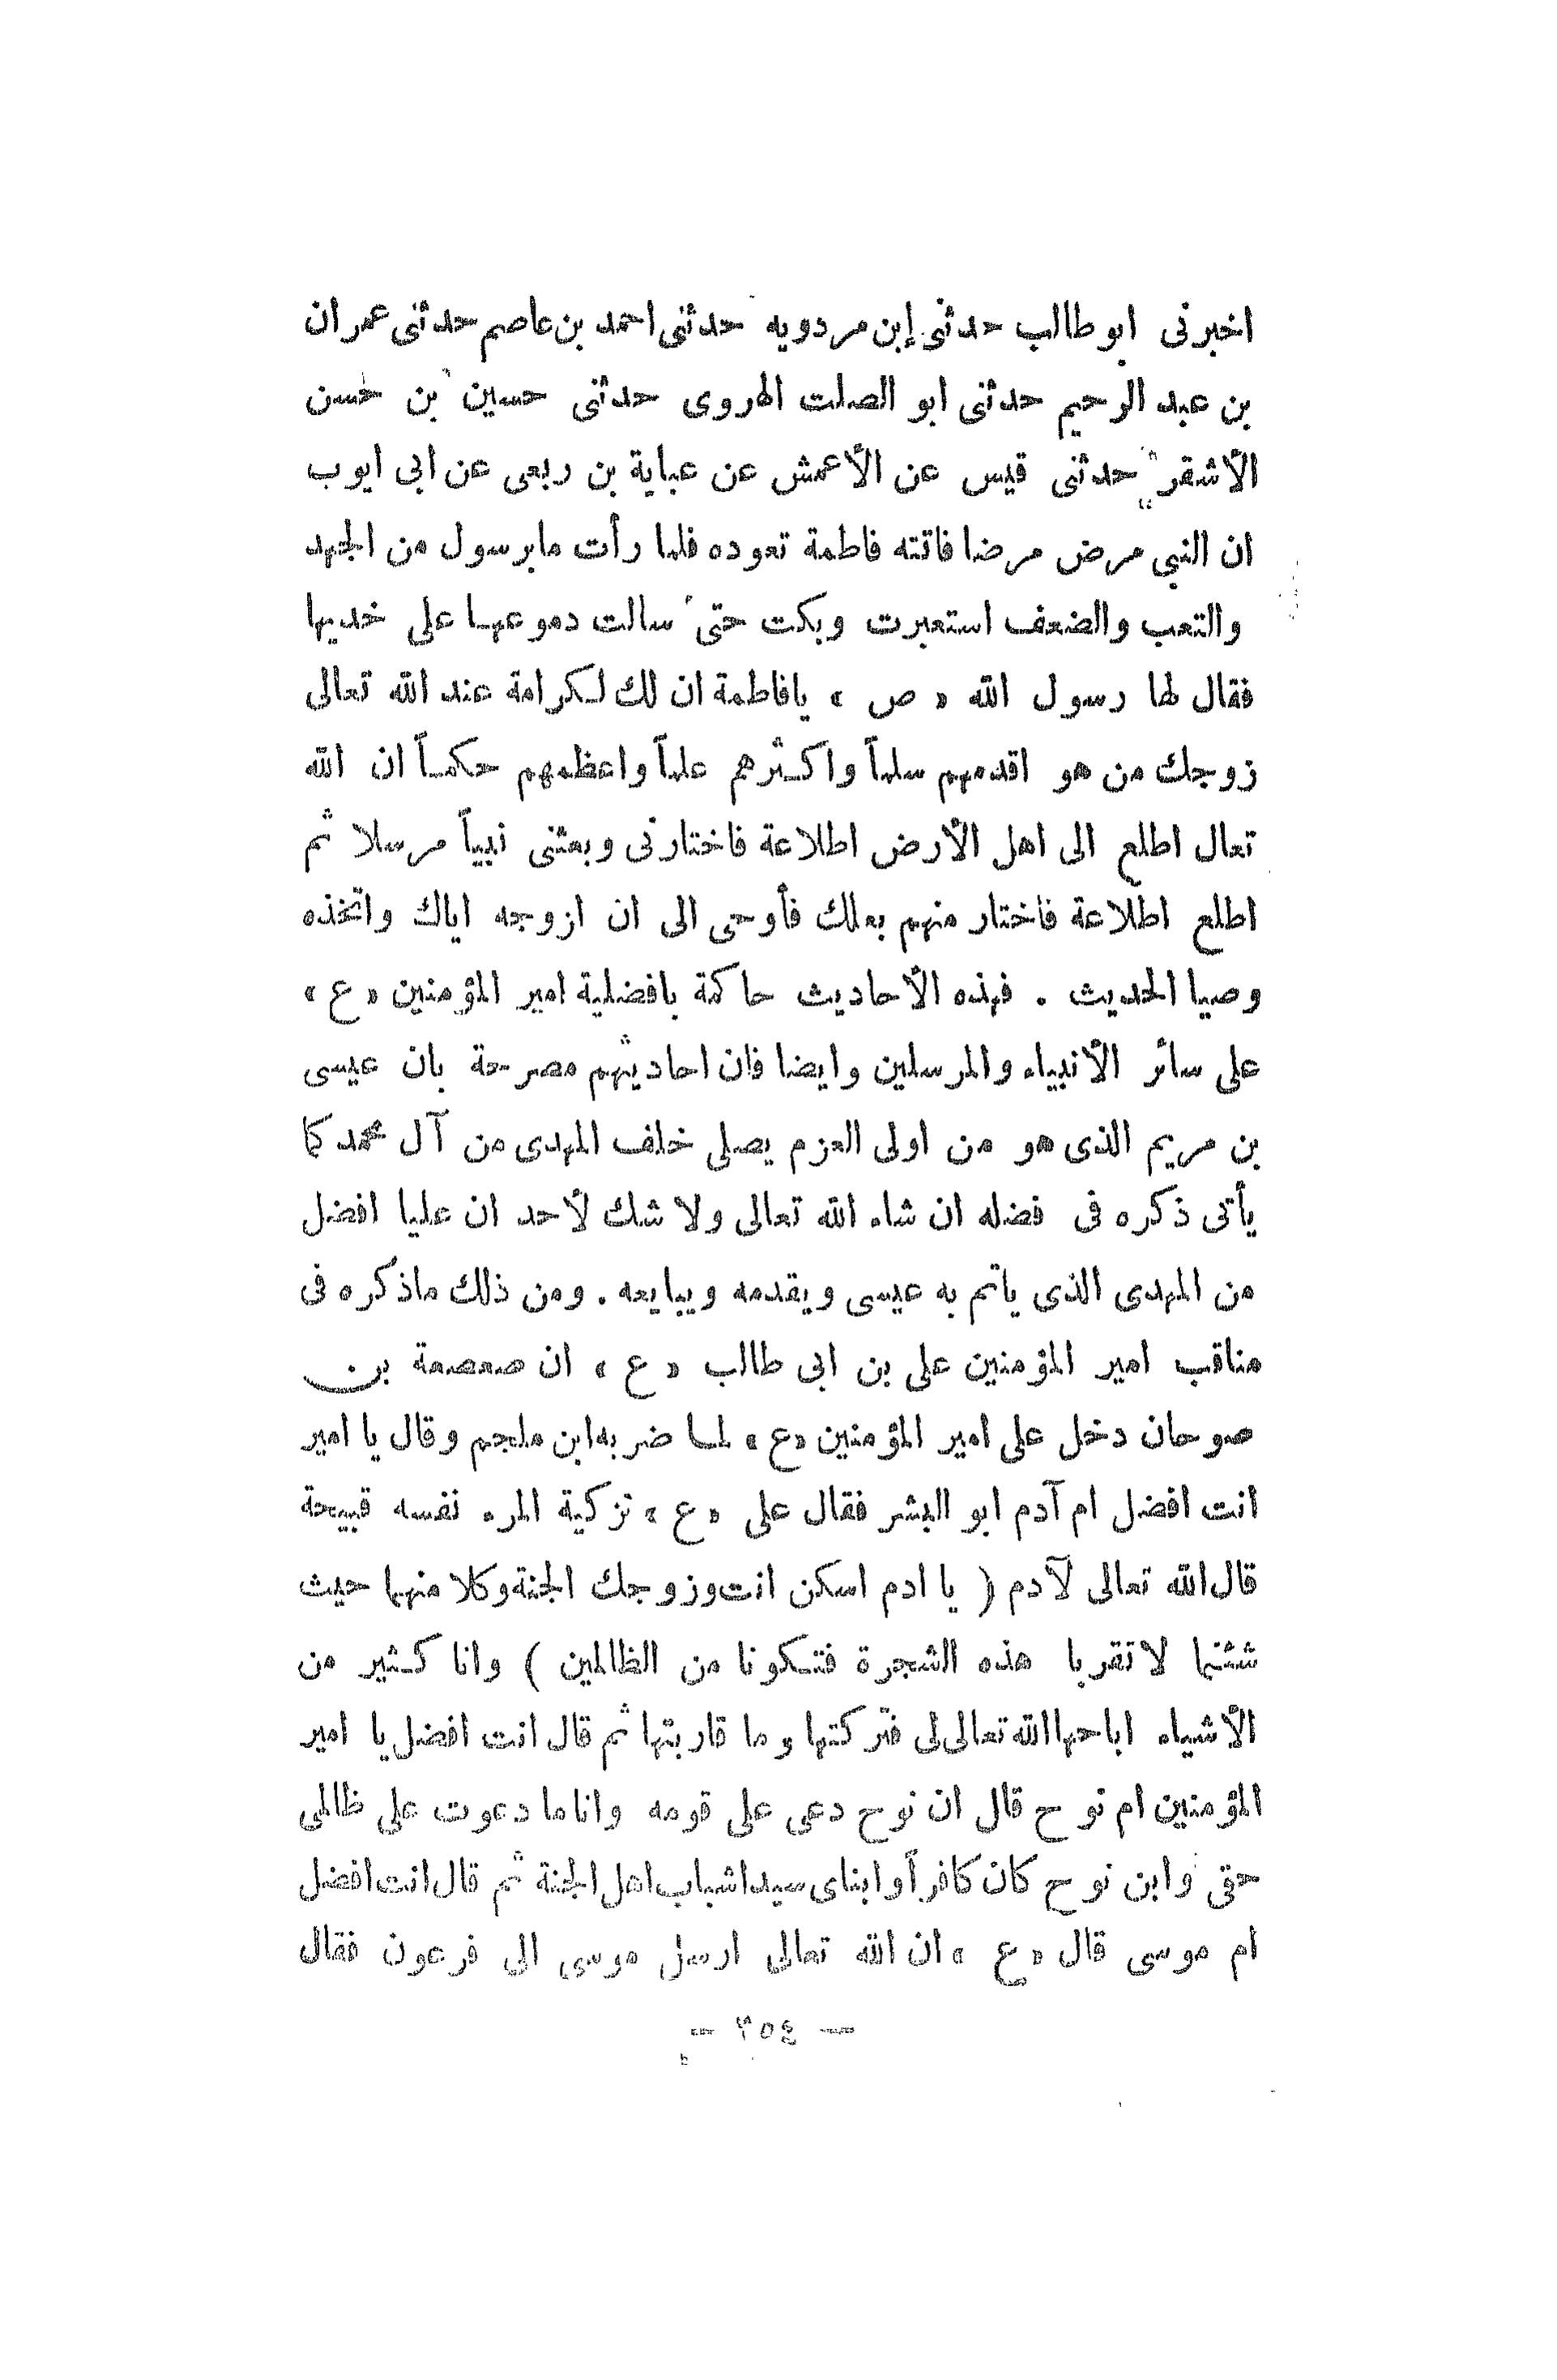 اخبرنى ابو طالب حدثنى إبن مردويه حدثنى احمد بن عاصم حدثنى عمران
بن عبد الرحيم حدثنى ابو الصلت الهروى حدثنى حسين بن حسن
الأشقر حدثنى قيس عن الأعمش عن عباية بن ربعى عن ابى ايوب
ان النبى مرض مرضا فاتته فاطمة تعوده فلما رأت مابرسول من الجهد
والتعب والضعف استعبرت وبكت حتى سالت دموعهـا على خديها
فقال لها رسول الله « ص » يافاطمة ان لك لـكرامة عند الله تعالى
زوجك من هو اقدمهم سلماً واكـثرهم علماً واعظمهم حكمـاً ان الله
تعال اطلع الى اهل الأرض اطلاعة فاختارنى وبعثنى نبياً مرسلا ثم
اطلع اطلاعة فاختار منهم بعلك فأوحى الى ان ازوجه اياك واتخذه
وصيا الحديث . فهذه الأحاديث حاكمة بافضلية امير المؤمنين « ع »
على سائر الأنبياء والمرسلين وايضا فان احاديثهم مصرحة بان عيسى
بن مريم الذى هو من اولى العزم يصلى خلف المهدى من آل محمد كما
يأتى ذكره فى فضله ان شاء الله تعالى ولا شك لأحد ان عليا افضل
من المهدى الذى ياتم به عيسى ويقدمه ويبايعه . ومن ذلك ماذكره فى
مناقب امير المؤمنين على بن ابى طالب « ع » ان صعصعة بن
صوحان دخل على امير المؤمنين «ع» لمـا ضربه ابن ملجم وقال يا امير
انت افضل ام آدم ابو البشر فقال على « ع » تزكية المرء نفسه قبيحة
قال الله تعالى لآدم ( يا ادم اسكن انت وزوجك الجنة وكلا منهما حيث
شئتما لا تقربا هذه الشجرة فتـكونا من الظالمين ) وانا كـثير من
الأشياء اباحها الله تعالى لى فتركتها وما قاربتها ثم قال انت افضل يا امير
المؤمنين ام نوح قال ان نوح دعى على قومه وانا ما دعوت على ظالمى
حقى وابن نوح كان كافراً وابناى سيدا شباب اهل الجنة ثم قال انت افضل
ام موسى قال « ع » ان الله تعالى ارسل موسى الى فرعون فقال
— ٣٥٤ —